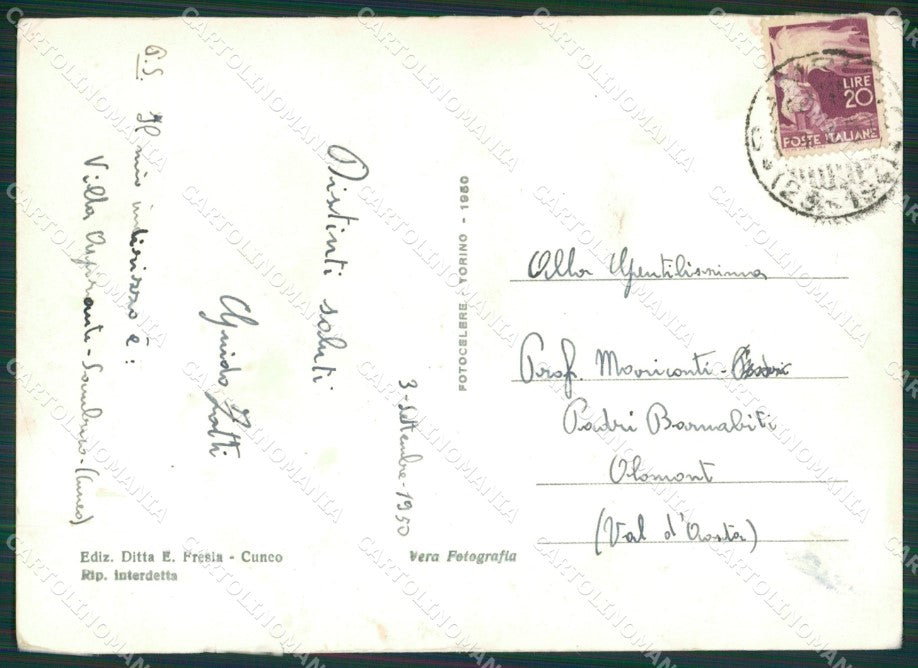 P.S. Il mio indirizzo è:
Villa Aspiranti - Sambuco - (Cuneo)
Distinti saluti
Guido Zatti
3 - Settembre - 1950
FOTOCELERE. TORINO - 1950
LIRE
20
POSTE ITALIANE
Alla Gentilissima
Prof. Moriconti -
Padri Barnabiti
Olomont
(Val d'Aosta)
Ediz. Ditta E. Fresia - Cuneo
Rip. interdetta
Vera Fotografia
CARTOLINOMANIA